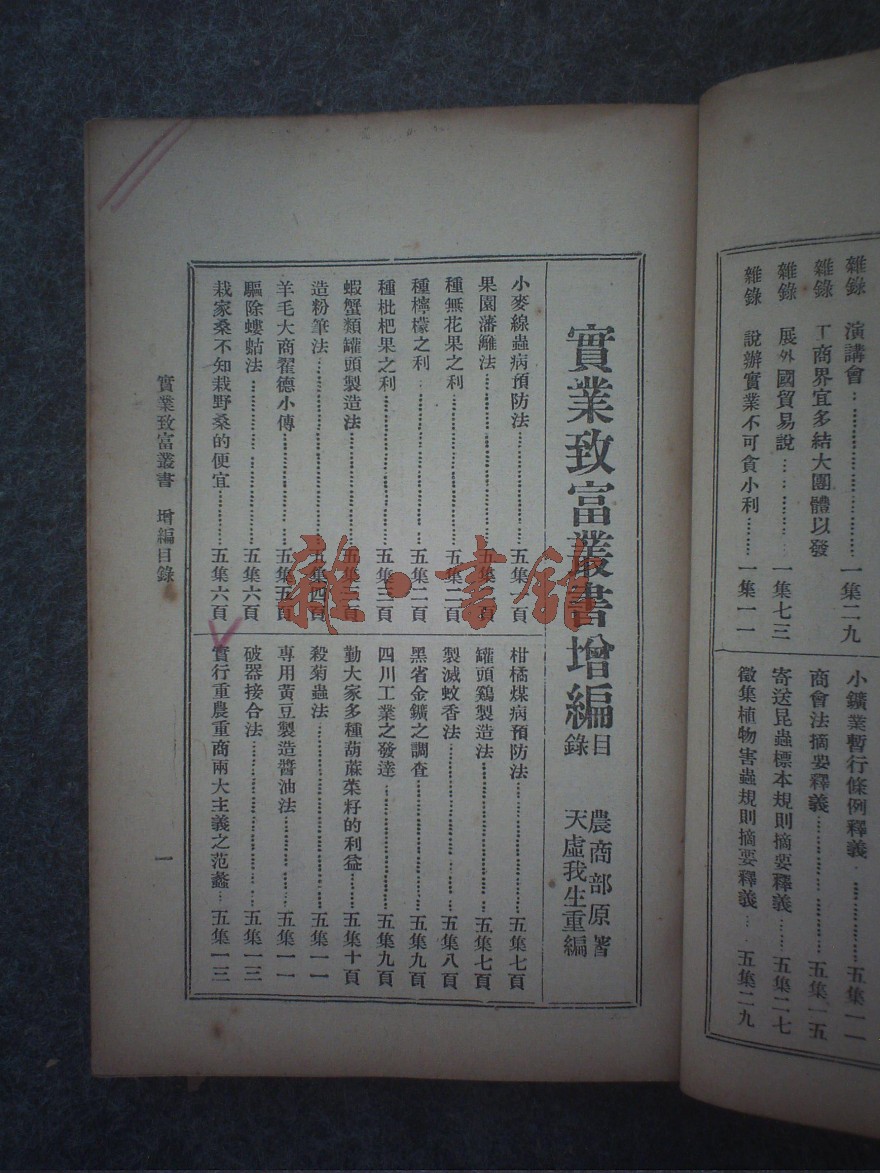 雜錄 演講會……一集二九
雜錄 工商界宜多結大團體以發
雜錄 展外國貿易說……一集七三
雜錄 說辦實業不可貪小利……一集一一
小鑛業暫行條例釋義……五集一一
商會法摘要釋義……五集一五
寄送昆蟲標本規則摘要釋義……五集二七
徵集植物害蟲規則摘要釋義……五集二九
實業致富叢書增編目錄
農商部原著
天虛我生重編
小麥線蟲病預防法……五集一頁
果園藩籬法……五集一頁
種無花果之利……五集二頁
種檸檬之利……五集二頁
種枇杷果之利……五集三頁
蝦蟹類罐頭製造法……五集三頁
造粉筆法……五集四頁
羊毛大商翟德小傳……五集五頁
驅除螻蛄法……五集六頁
栽家桑不知栽野桑的便宜……五集六頁
柑橘煤病預防法……五集七頁
罐頭鷄製造法……五集七頁
製滅蚊香法……五集八頁
黑省金鑛之調查……五集九頁
四川工業之發達……五集九頁
勸大家多種葫蔴菜籽的利益……五集十頁
殺菊蟲法……五集一一
專用黃豆製造醬油法……五集一一
破器接合法……五集一三
實行重農重商兩大主義之范蠡……五集一三
實業致富叢書 增編目錄
一
雜·書館